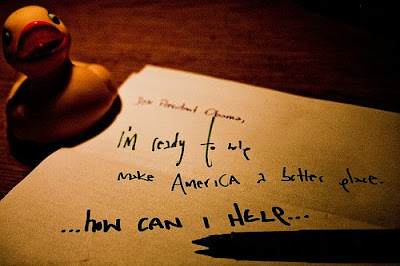 Dear President Obama,
i'm ready to help
make America a better place.
...how CAN I HELP...